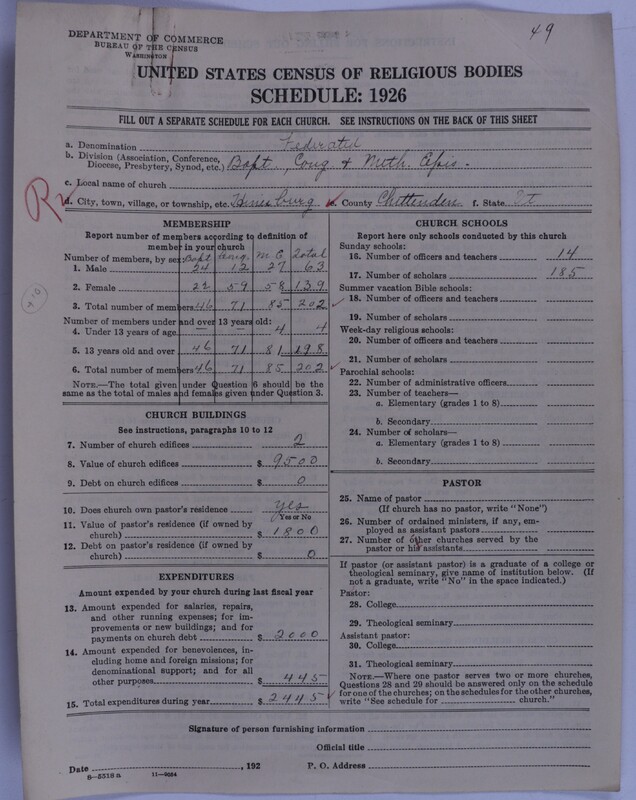 49
DEPARTMENT OF COMMERCE
BUREAU OF THE CENSUS
WASHINGTON
UNITED STATES CENSUS OF RELIGIOUS BODIES
SCHEDULE: 1926
FILL OUT A SEPARATE SCHEDULE FOR EACH CHURCH. SEE INSTRUCTIONS ON THE BACK OF THIS SHEET
a. Denomination Federated
b. Division (Association, Conference, Diocese, Presbytery, Synod, etc.) Bapt., Cong & Meth. Epis.
c. Local name of church
d. City, town, village, or township, etc. Hinesburg e. County Chittenden f. State Vt
MEMBERSHIP
Report number of members according to definition of
member in your church
Number of members, by sex: Bapt Cong. M E Total
1. Male 24 12 27 63
2. Female 22 59 58 139
3. Total number of members 46 71 85 202
Number of members under and over 13 years old:
4. Under 13 years of age 4 4
5. 13 years old and over 46 71 81 198
6. Total number of members 46 71 85 202
NOTE.—The total given under Question 6 should be the
same as the total of males and females given under Question 3.
CHURCH BUILDINGS
See instructions, paragraphs 10 to 12
7. Number of church edifices 2
8. Value of church edifices $ 9500
9. Debt on church edifices $ 0
10. Does church own pastor's residence yes
Yes or No
11. Value of pastor's residence (if owned by
church) $ 1800
12. Debt on pastor's residence (if owned by
church) $ 0
EXPENDITURES
Amount expended by your church during last fiscal year
13. Amount expended for salaries, repairs,
and other running expenses; for im-
provements or new buildings; and for
payments on church debt $ 2000
14. Amount expended for benevolences, in-
cluding home and foreign missions; for
denominational support; and for all
other purposes $ 445
15. Total expenditures during year $ 2445
CHURCH SCHOOLS
Report here only schools conducted by this church
Sunday schools:
16. Number of officers and teachers 14
17. Number of scholars 185
Summer vacation Bible schools:
18. Number of officers and teachers
19. Number of scholars
Week-day religious schools:
20. Number of officers and teachers
21. Number of scholars
Parochial schools:
22. Number of administrative officers
23. Number of teachers—
a. Elementary (grades 1 to 8)
b. Secondary
24. Number of scholars—
a. Elementary (grades 1 to 8)
b. Secondary
PASTOR
25. Name of pastor
(If church has no pastor, write "None")
26. Number of ordained ministers, if any, em-
ployed as assistant pastors
27. Number of other churches served by the
pastor or his assistants
If pastor (or assistant pastor) is a graduate of a college or
theological seminary, give name of institution below. (If
not a graduate, write "No" in the space indicated.)
Pastor:
28. College
29. Theological seminary
Assistant pastor:
30. College
31. Theological seminary
NOTE.—Where one pastor serves two or more churches,
Questions 28 and 29 should be answered only on the schedule
for one of the churches; on the schedules for the other churches,
write "See schedule for church."
Signature of person furnishing information
Official title
Date , 192 P. O. Address
8—5518 a 11—9034